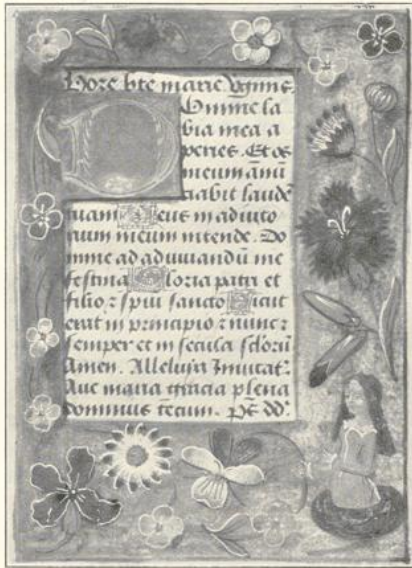 Hore bte marie vginis.
Domine la
bia mea a
peries. Et os
meum anū
ciabit laudē
tuam Deus in adiuto
rium meum intende. Do
mine ad adiuuandū me
festina Gloria patri et
filio ⁊ spiū sancto Sicut
erat in principio ⁊ nunc ⁊
semper et in secula sclorū
Amen. Alleluya Inuitat'.
Aue maria gracia plena
dominus tecum. ps̄ dd'.